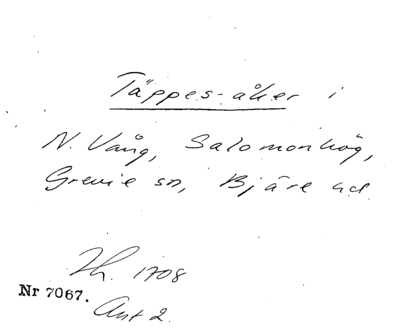 Täppes-åker i
N. Vång, Salomonhög,
Grevie sn, Bjäre hd
Th. 1708
Nr 7067.
Ant 2.